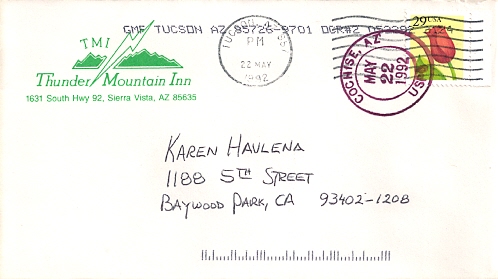 GMF TUCSON AZ 85726-9701 OCR#2 052292 2124
TUCSON, AZ 857
PM
22 MAY
1992
29 USA
COCHISE, AZ
MAY
22
1992
USPS
TMI
Thunder Mountain Inn
1631 South Hwy 92, Sierra Vista, AZ 85635
KAREN HAVLENA
1188 5TH STREET
BAYWOOD PARK, CA 93402-1208